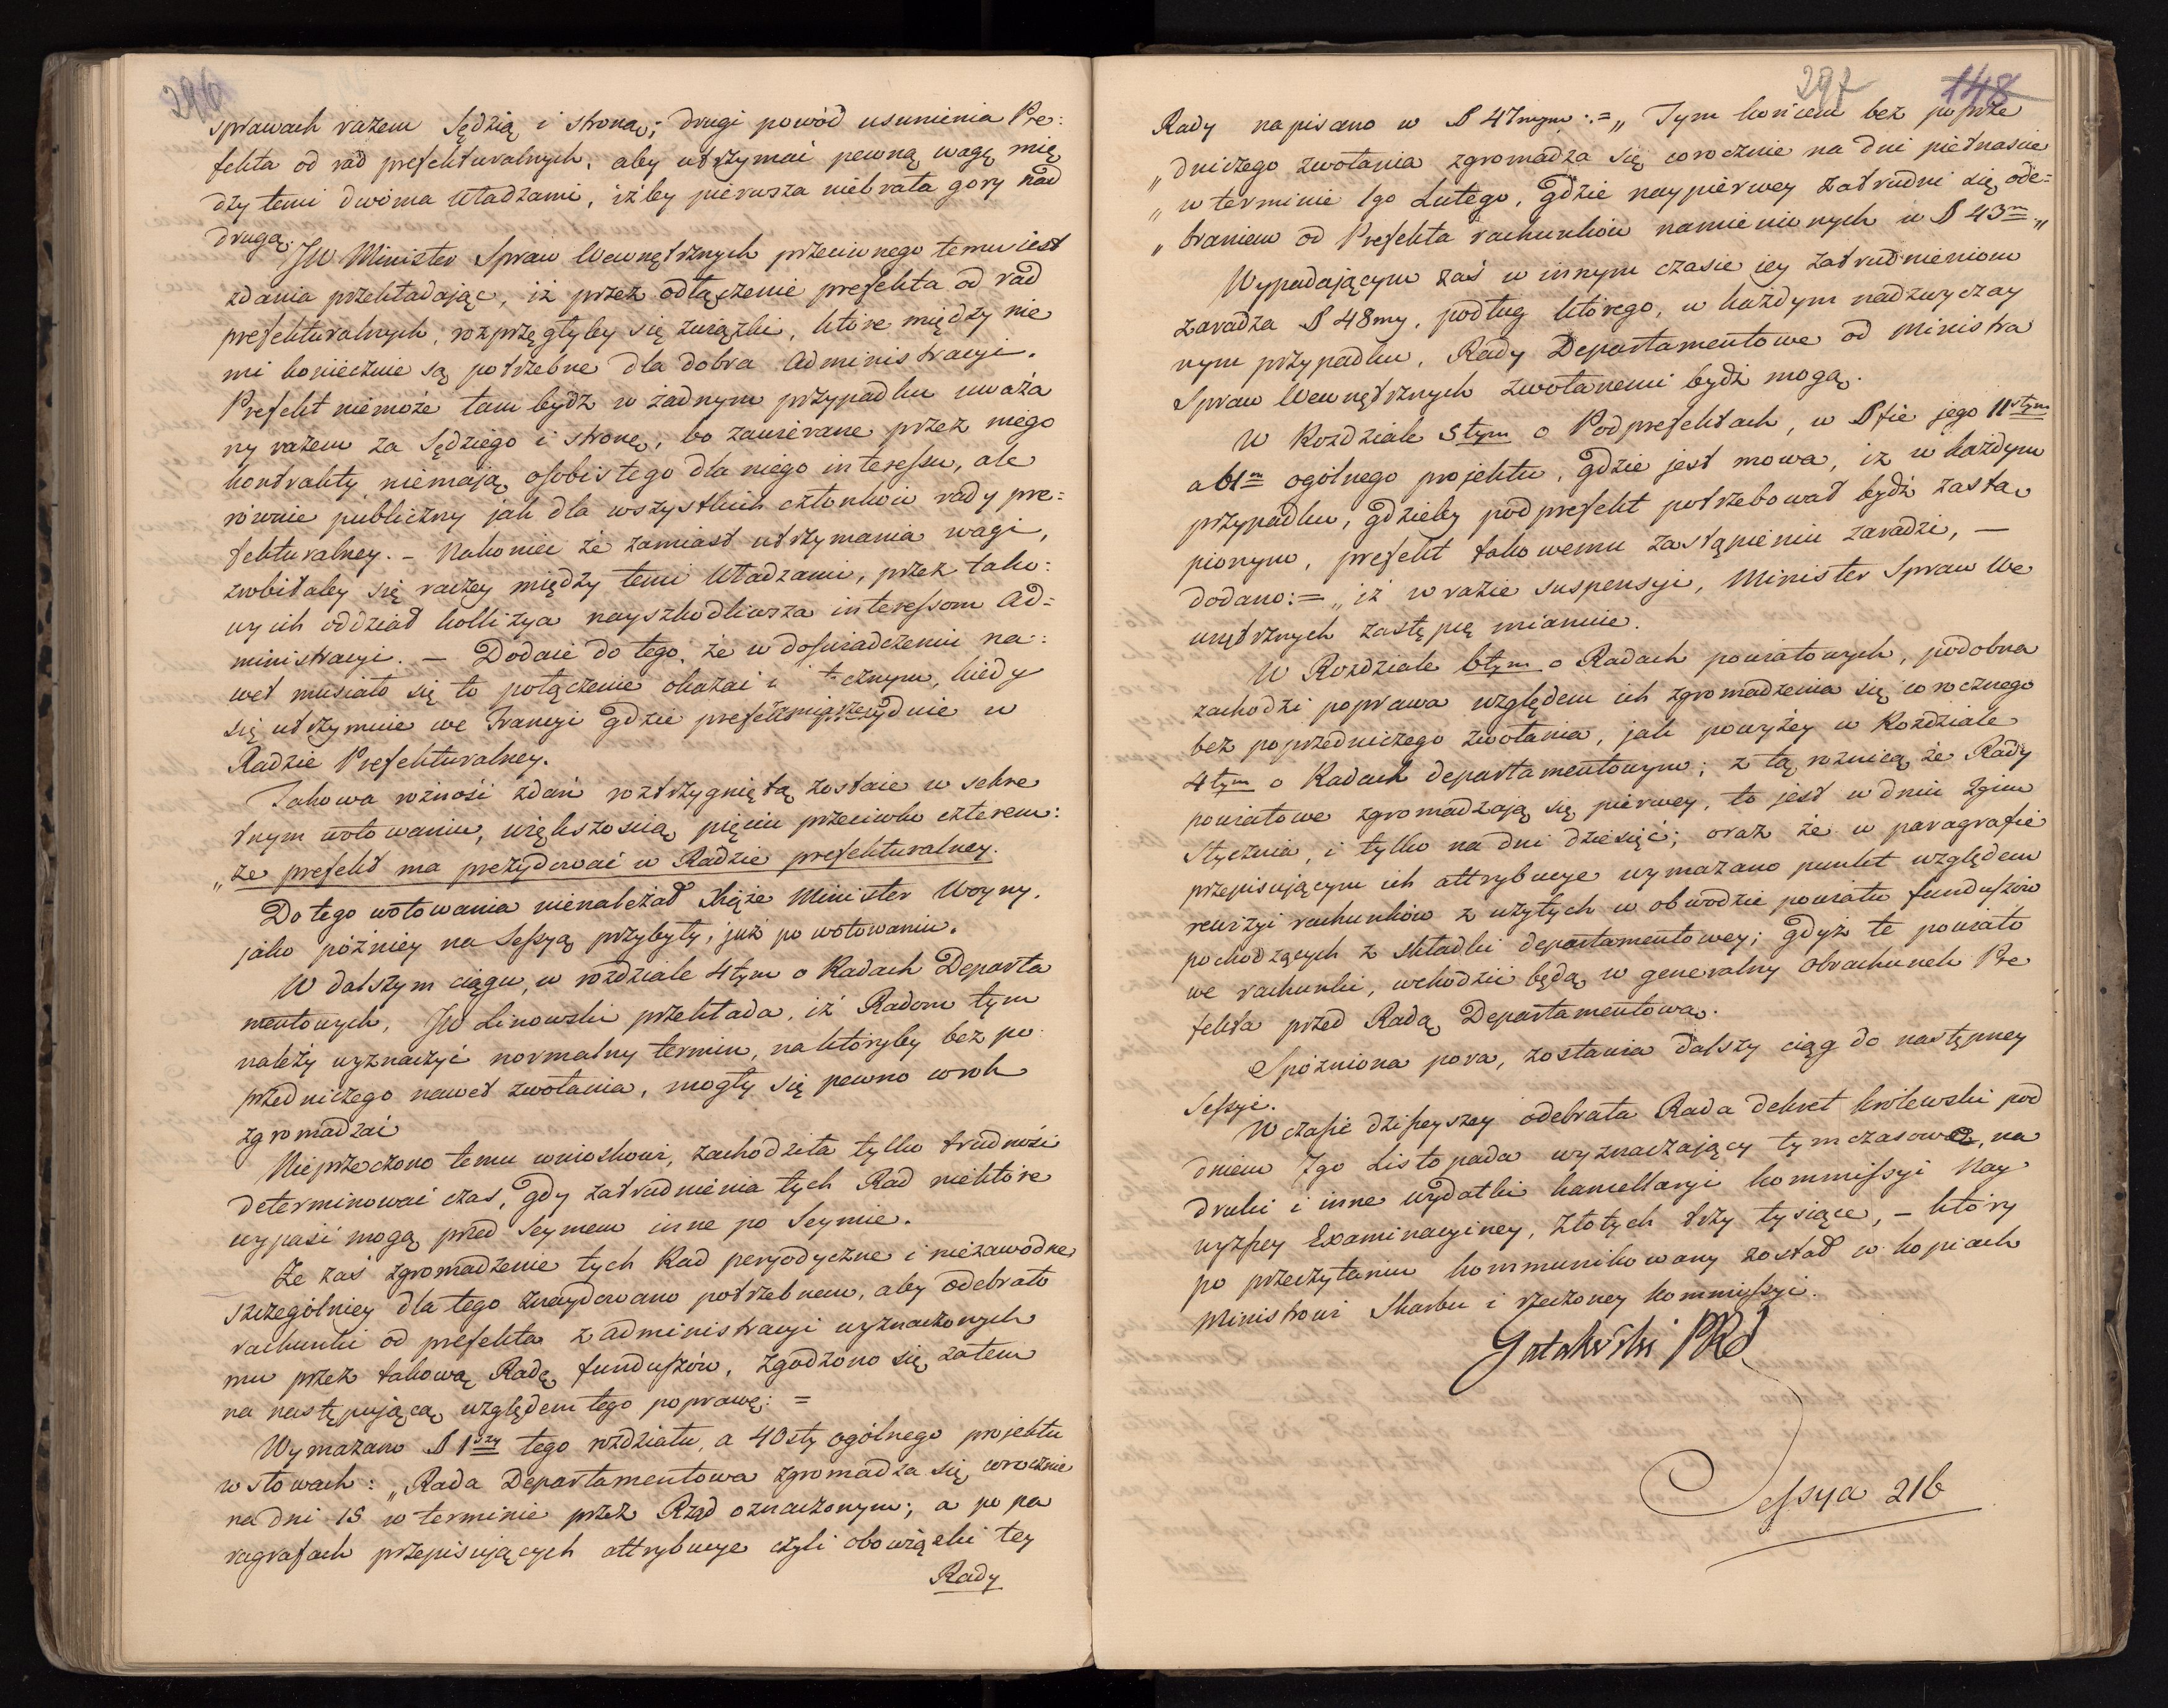 296
sprawach razem Sędzią i stroną; drugi powód usunienia Pre:
fekta od rad prefekturalnych, aby utrzymać pewną wagę mię
dzy temi dwóma Władzami, iżby pierwsza niebrała gory nad
drugą.
JW Minister Spraw Wewnętrznych przeciwnego temu jest
zdania przekładając, iż przez odłączenie prefekta od rad
prefekturalnych, rozprzęgłyby się związki, które między nie
mi koniecznie są potrzebne dla dobra Administracyi.
Prefekt niemoże tam bydź w żadnym przypadku uważa
ny razem za Sędziego i stronę, bo zawierane przez niego
kontrakty, niemają osobistego dla niego interessu, ale
równie publiczny jak dla wszystkich członków rady pre:
fekturalney. – Nakoniec że zamiast utrzymania wagi,
zrobiłaby się raczey między temi Władzami, przez tako:
wy ich oddział kollizya nayszkodliwsza interessom Ad:
ministracyi. – Dodaie do tego, że w doświadczeniu na:
wet musiało się to połączenie okazać i cznym, kiedy
się utrzymuie we Francyi gdzie prefekt prezyduie w
Radzie Prefekturalney.
Takowa rożność zdań roztrzygniętą zostaie w sekre
tnym wotowaniu, większością pięciu przeciwko czterem:
„że prefekt ma prezydować w Radzie prefekturalney.
Do tego wotowania nienależał Xiąże Minister Woyny,
jako późniey na Sessyą przybyły, już po wotowaniu.
W dalszym ciągu, w rozdziale 4tym o Radach Departa
mentowych, JW Linowski przekłada, iż Radom tym
należy wyznaczyć normalny termin, na któryby bez po:
przedniczego nawet zwołania, mogły się pewno corok
zgromadzać
Nieprzeczono temu wnioskowi, zachodziła tylko trudność
determinować czas, gdy zatrudnienia tych Rad niektóre
wypaść mogą przed Seymem inne po Seymie.
Że zaś zgromadzenie tych Rad peryodyczne i niezawodne
szczególniey dla tego znaydowano potrzebnem, aby odebrało
rachunki od prefekta z administracyi wyznaczonych
mu przez takową Radę funduszów, zgodzono się zatem
na następującą względem tego poprawę: =
Wymazano § 1szy tego rozdziału, a 40sty ogólnego projektu
w słowach: „Rada Departamentowa zgromadza się corocznie
na dni 15 w terminie przez Rząd oznaczonym; a po pa
ragrafach przepisujących attrybucye czyli obowiązki tey
Rady
297 148
Rady napisano w § 47mym: = „Tym końcem bez poprze
„dniczego zwołania zgromadza się corocznie na dni piętnaście
„w terminie 1go Lutego, gdzie naypierwey zatrudni się ode:
„braniem od Prefekta rachunków namienionych w § 43m„
Wypadającym zaś w innym czasie iey zatrudnieniom
zaradza § 48my, podług którego, w każdym nadzwyczay
nym przypadku, Rady Departamentowe od Ministra
Spraw Wewnętrznych zwołanemi bydź mogą.
W Rozdziale 5tym o Podprefektach, w §fie jego 11stym
a 61m ogólnego projektu, gdzie jest mowa, iż w każdym
przypadku, gdzieby podprefekt potrzebował bydź zastą
pionym, prefekt takowemu zastąpieniu zaradzi, –
dodano: = „iż w razie suspensyi, Minister Spraw We
wnętrznych zastępcę mianuie.
W Rozdziale 6tym o Radach powiatowych, podobna
zachodzi poprawa względem ich zgromadzenia się corocznego
bez poprzedniczego zwołania, jak powyżey w Rozdziale
4tym o Radach departamentowym; z tą roznicą, że Rady
powiatowe zgromadzają się pierwey, to jest w dniu 2gim
Stycznia, i tylko na dni dziesięć; oraz że w paragrafie
przepisującym ich attrybucye wymazano punkt względem
rewizyi rachunków z użytych w obwodzie powiatu funduszów
pochodzących z składki departamentowey; gdyż te powiato
we rachunki, wchodzić będą w generalny obrachunek Pre
fekta przed Radą Departamentową.
Spóźniona pora, zostawia dalszy ciąg do następney
Sessyi.
W czasie dzisieyszey odebrała Rada dekret królewski pod
dniem 7go Listopada wyznaczający tymczasowo, na
druki i inne wydatki kancellaryi kommissyi Nay
wyzszey Examinacyiney, złotych trzy tysiące, – który
po przeczytaniu kommunikowany został w kopiach
Ministrowi Skarbu i rzeczoney kommissyi.
Gutakowski PRS
Sessya 216